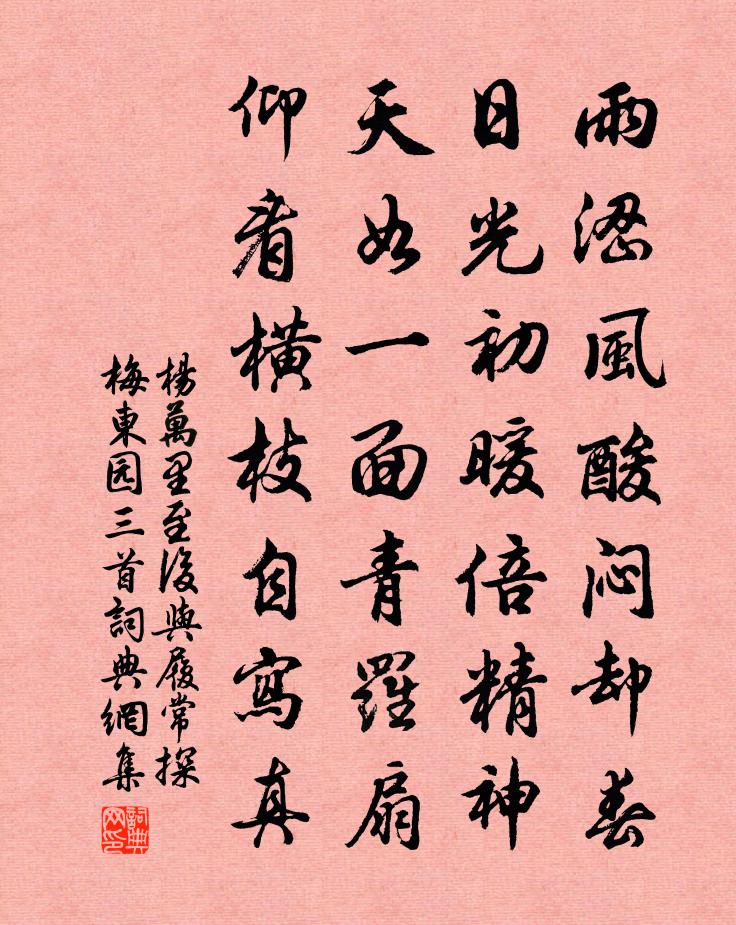 雨涩風酸闷却春
日光初暖倍精神
天如一面青羅扇
仰看橫枝自寫真
楊萬里至後與履常探
梅東园三首詞典網集
詞典网印